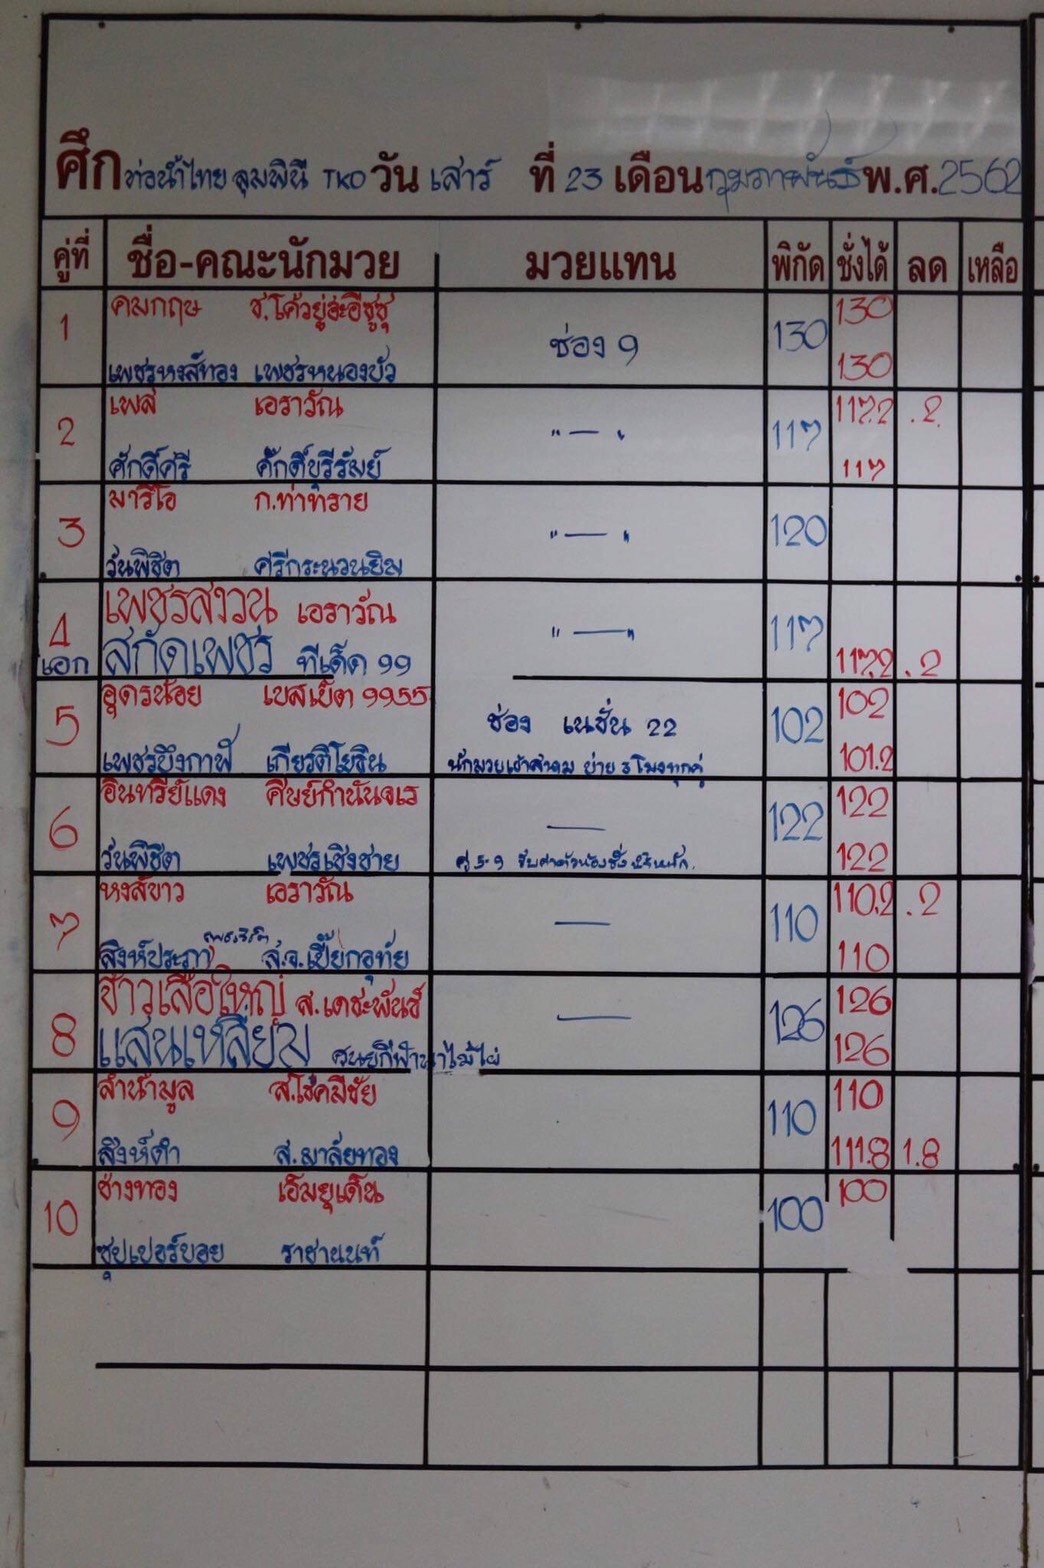 ศึก ท่อน้ำไทย ลุมพินี TKO วัน เสาร์ ที่ 23 เดือน กุมภาพันธ์ พ.ศ. 2562
คู่ที่ ชื่อ-คณะนักมวย มวยแทน พิกัด ชั่งได้ ลด เหลือ
1 คมกฤษ ช่อง 9 130 130
เพชรหงส์ทอง เพชรหนองบัว 130
2 เพส เอราวัณ "—" 117 117.2 .2
ศักดิ์ศรี ศักดิ์บุรีรัมย์ 117
3 มาริโอ ก.ท่าทราย "—" 120
วันพิชิต ศรีกระนวนยิม
4 เพชรสาวน เอราวัณ "—" 117
เอก สกัดเพชร ทีเด็ด 99 117.2 .2
5 อุดรน้อย เบสเบ็ต 9955 ช่อง เนชั่น 22 102 102
เพชรบึงกาฬ เกียรติโยธิน 101.2
6 อินทรีย์แดง ศิษย์กำนันจเร — 122 122
วันพิชิต เพชรเชิงชาย 122
7 หงส์ขาว เอราวัณ — 110 110.2 .2
สิงห์ประกา ส.จ.เปี๊ยกอุทัย 110
8 จ้าวเสือใหญ่ ส.เดชะพันธ์ — 126 126
แสนเหลี่ยม 126
9 ลำน้ำมูล ส.โชคมีชัย 110 110
สิงห์ดำ ส.มาลัยทอง 111.8 1.8
10 ช่างทอง เอ็มยูเด็น 100 100
ซุปเปอร์บอย ราชานนท์